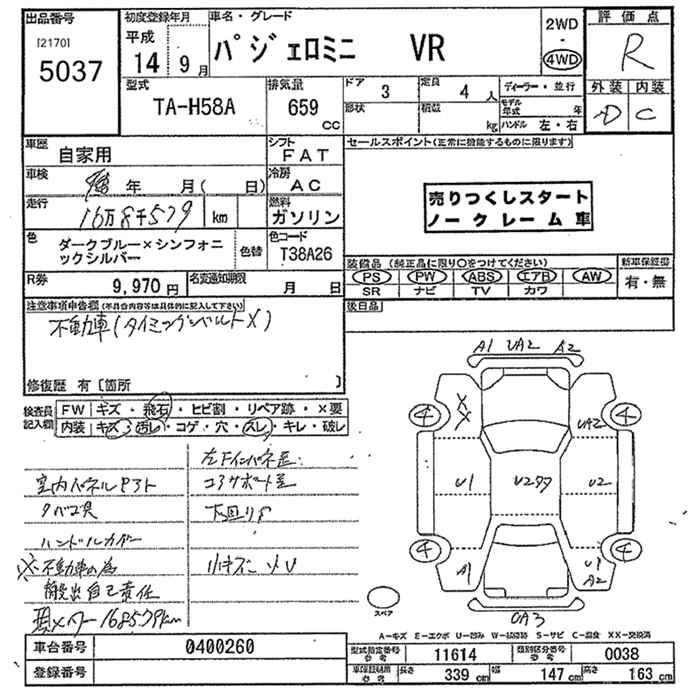 出品番号
[2170]
5037
初度登録年月
平成
14年9月
車名・グレード
パジェロミニ VR
2WD
・
4WD
評価点
R
外装 内装
D C
型式
TA-H58A
排気量
659
CC
ドア
3
定員
4人
形状
積数
kg
ディーラー・並行
モデル年式 年
ハンドル 左・右
車歴
自家用
シフト
FAT
車検
年 月( 日)
冷房
AC
走行
16万8千579 km
燃料
ガソリン
色
ダークブルー×シンフォニ
ックシルバー
色替
色コード
T38A26
R券
9,970円
名変通知期限
月 日
セールスポイント(正常に機能するものに限ります)
売りつくしスタート
ノークレーム車
装備品(純正品に限り○をつけてください)
PS PW ABS エアB AW
SR ナビ TV カワ
新車保証書
有・無
後日品
注意事項申告欄(不具合内容等は具体的に記入して下さい)
不動車(タイミングベルトX)
修復歴 有[箇所 ]
検査員
記入欄
FW キズ・飛石・ヒビ割・リペア跡・×要
内装 キズ・汚レ・コゲ・穴・スレ・キレ・破レ
室内パネルPスト
タバコ臭
ハンドルカバー
※不動車の為
搬出自己責任
168579km
左ドインパネ歪
コアサポート歪
下回リサ
小キズ
A1 UA2 A2
4 XX UA2 4
U1 U2 U2
4 A1 U1 A2 4
UA3
スペア
A-キズ E-エクボ U-凹み W-波補跡 S-サビ C-腐食 XX-交換済
車台番号 0400260
登録番号
型式指定番号 参考 11614
類別区分番号 参考 0038
車体証明用 参考 長さ 339 cm 幅 147 cm 高さ 163 cm